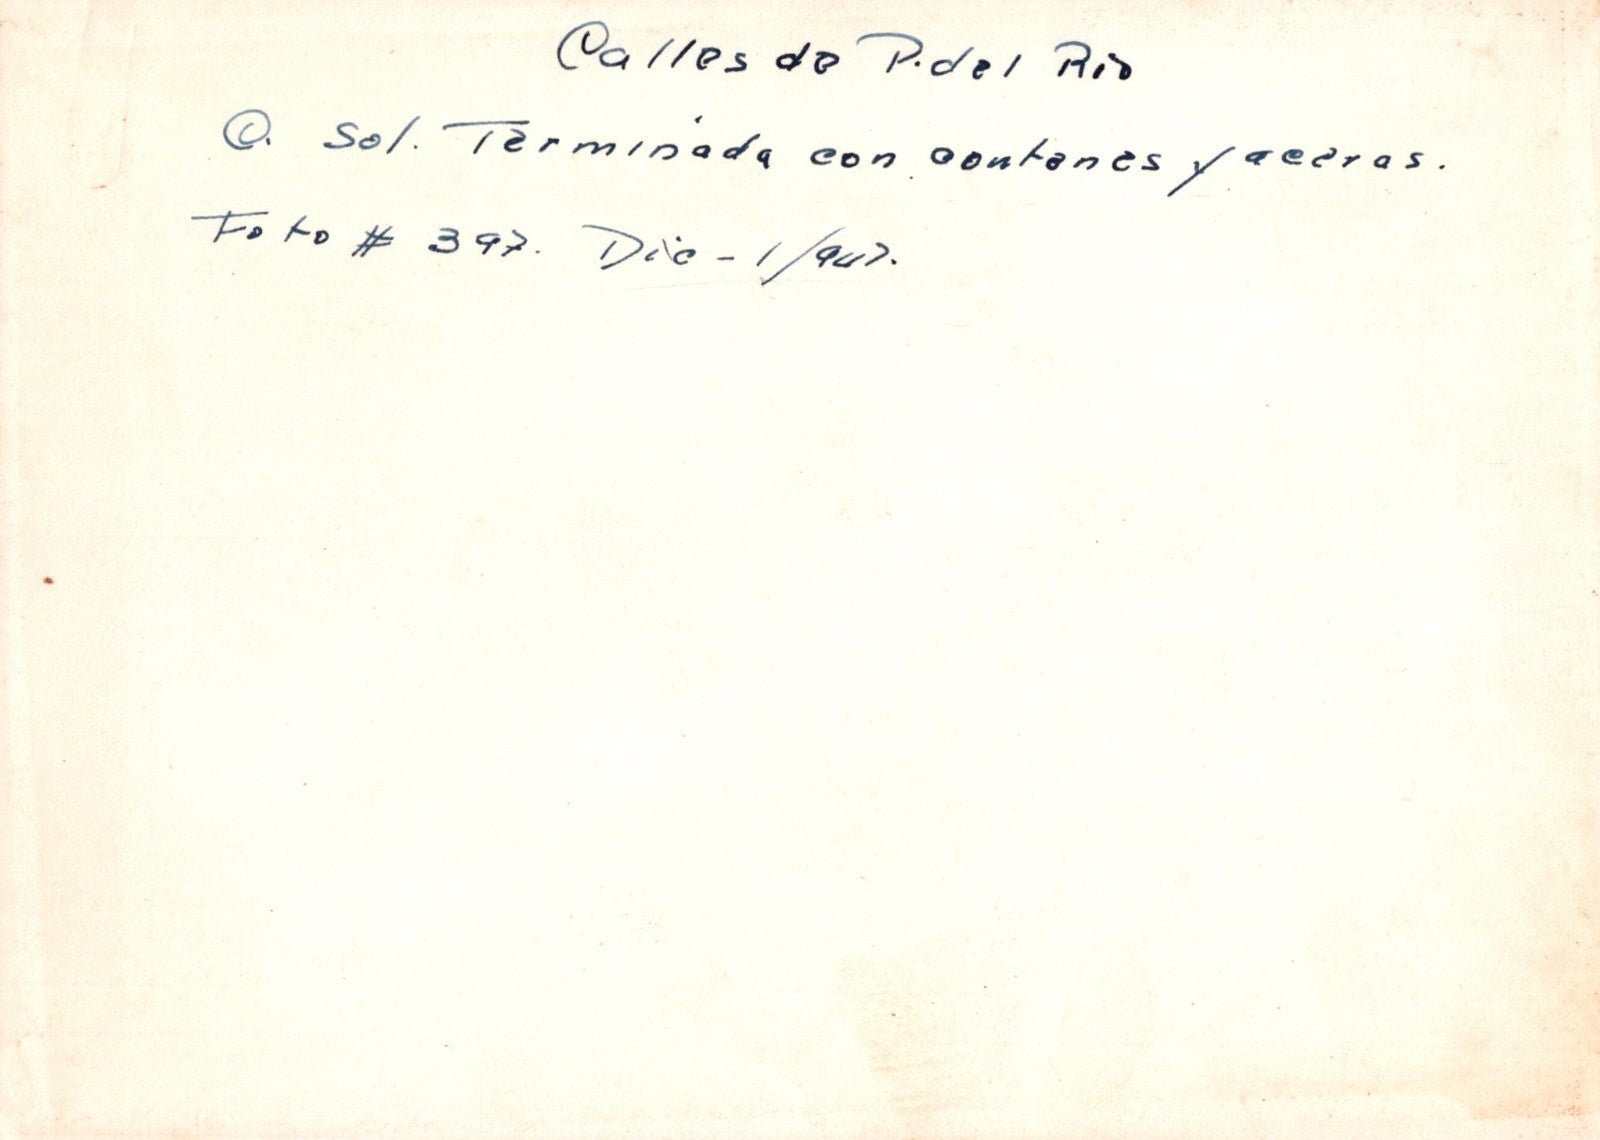 Calles de P. del Rio
C. Sol. Terminada con contenes y aceras.
Foto # 397. Dic - 1/947.